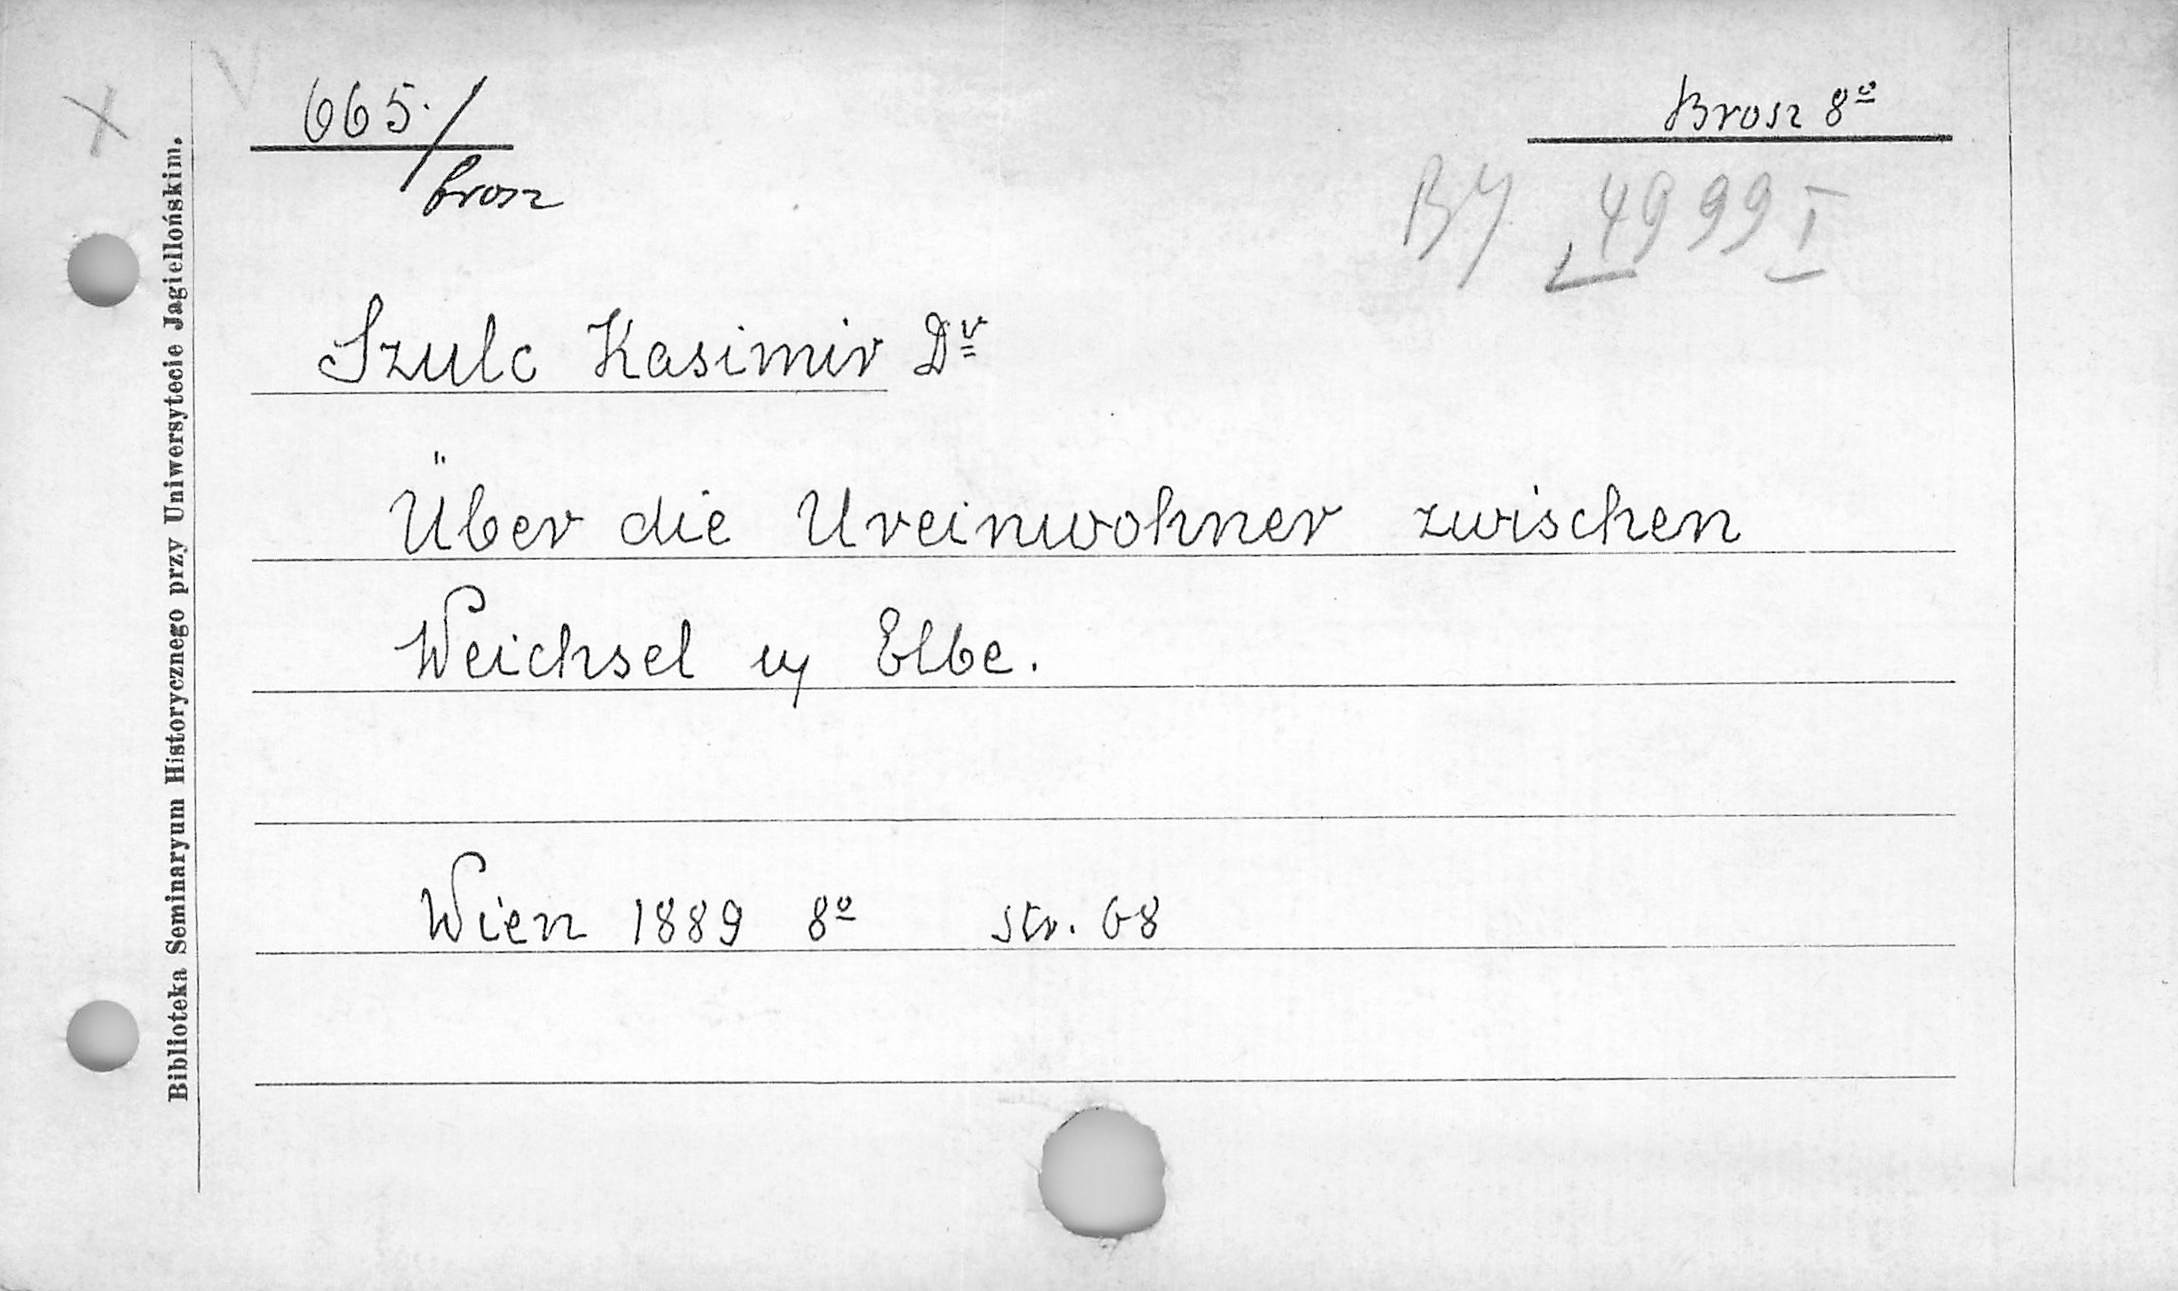 665./brosz
Brosz 8º
BJ 4999 I
Szulc Kasimir Dr
Über die Ureinwohner zwischen
Weichsel u Elbe.
Wien 1889 8º str. 68
Biblioteka Seminaryum Historycznego przy Uniwersytecie Jagiellońskim.